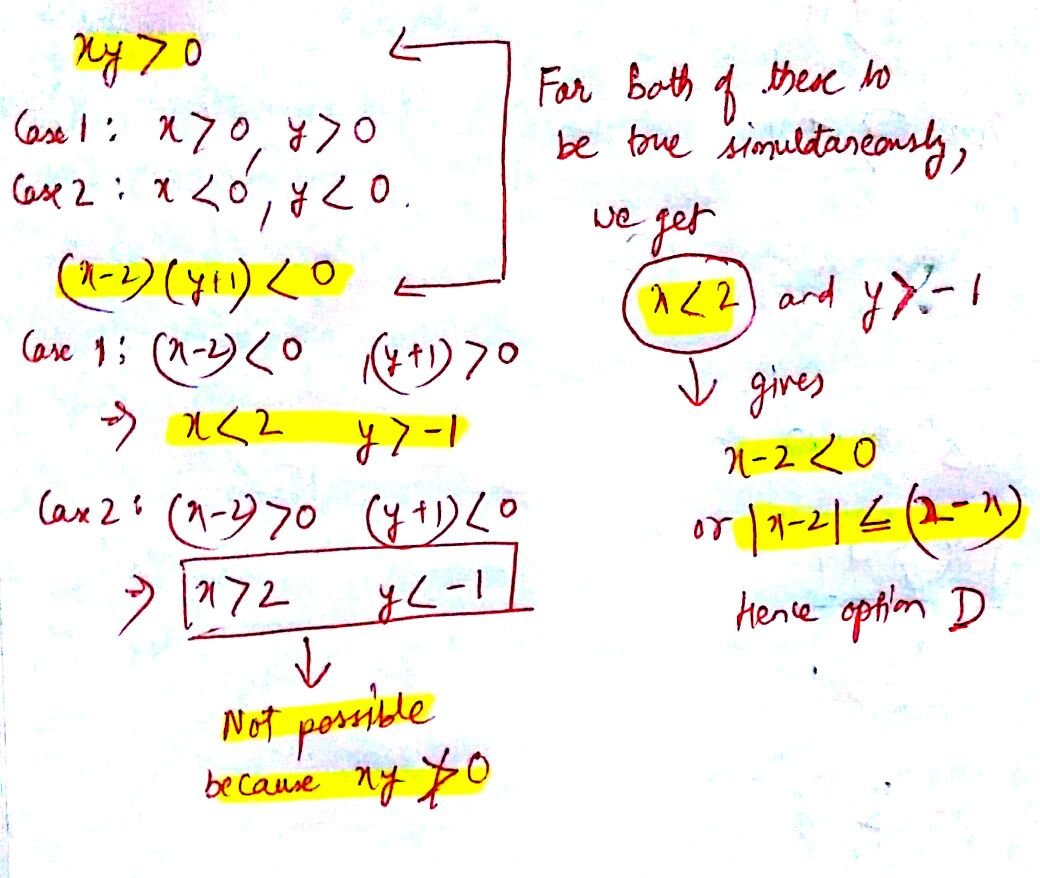 xy > 0
Case 1: x > 0, y > 0
Case 2: x < 0, y < 0.
(x-2)(y+1) < 0
Case 1: (x-2) < 0, (y+1) > 0
⇒ x < 2 y > -1
Case 2: (x-2) > 0 (y+1) < 0
⇒ x > 2 y < -1
Not possible
because xy ≯ 0
For both of these to
be true simultaneously,
we get
x < 2 and y > -1
gives
x-2 < 0
or |x-2| ≤ (2-x)
Hence option D